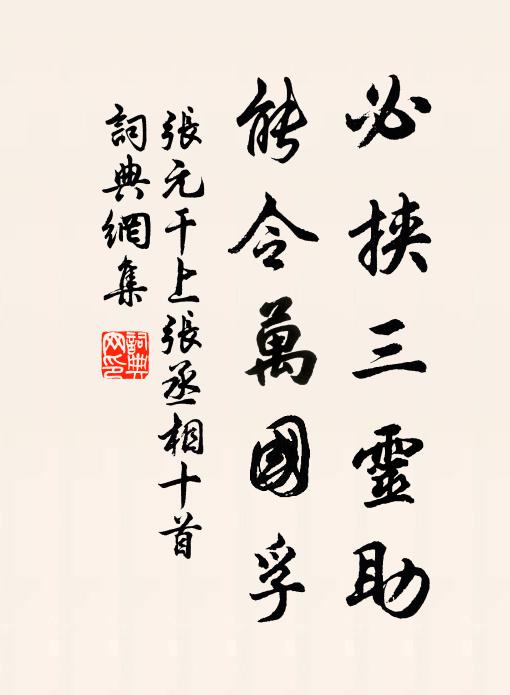 必挾三靈助
能令萬國孚
張元干上張丞相十首
詞典網集
詞典
网印